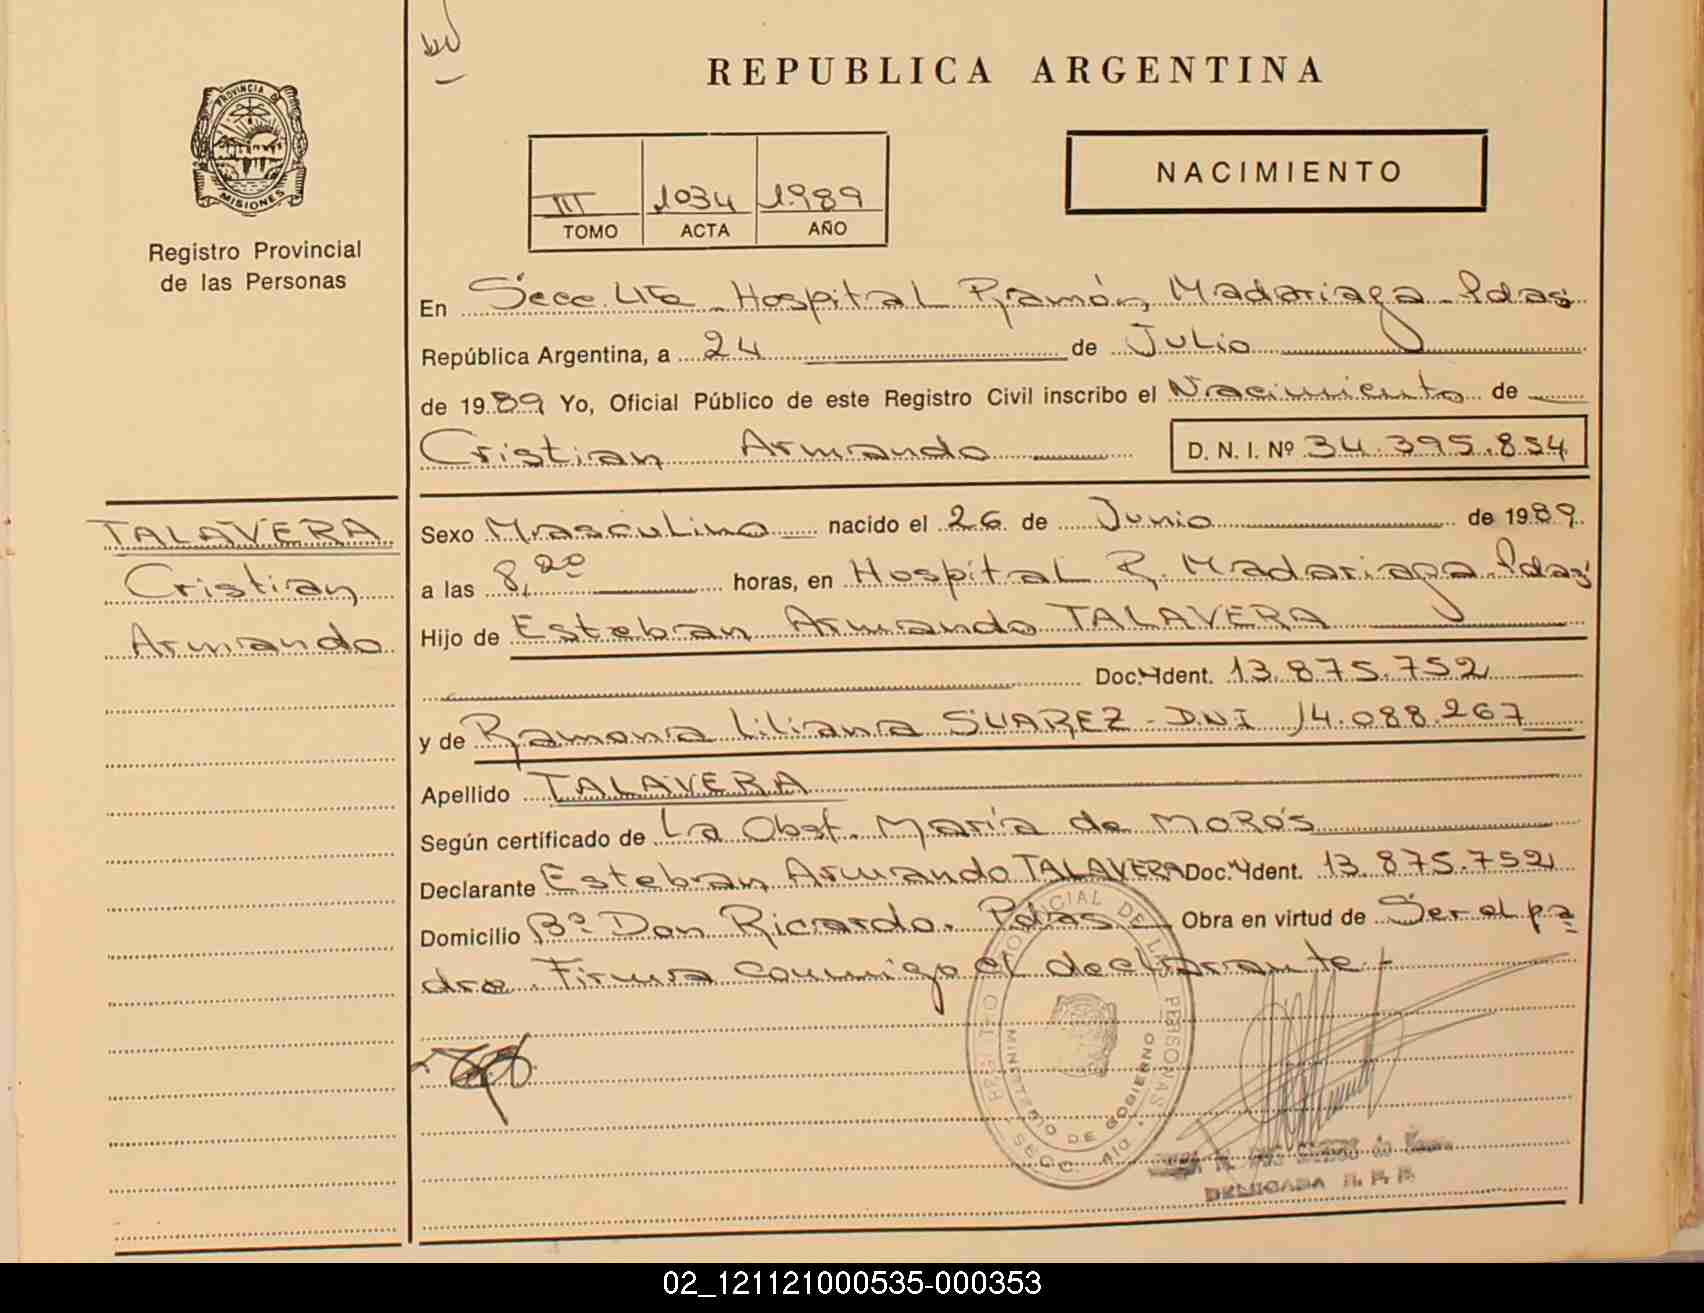 REPUBLICA ARGENTINA
PROVINCIA DE
MISIONES
Registro Provincial
de las Personas
NACIMIENTO
III 1034 1989
TOMO ACTA AÑO
En Secc. 4ta - Hospital Ramón Madariaga - Pdas
República Argentina, a 24 de Julio
de 1989 Yo, Oficial Público de este Registro Civil inscribo el Nacimiento de
Cristian Armando D. N. I. Nº 34.395.854
TALAVERA
Cristian
Armando
Sexo Masculino nacido el 26 de Junio de 1989
a las 8,20 horas, en Hospital R. Madariaga - Pdas
Hijo de Esteban Armando TALAVERA
Doc. Ident. 13.875.752
y de Ramona Liliana SUAREZ - DNI 14.088.267
Apellido TALAVERA
Según certificado de La Obst. María de MoRós
Declarante Esteban Armando TALAVERA Doc. Ident. 13.875.752
Domicilio Bº Don Ricardo. Pdas Obra en virtud de Ser el pa
dre. Firma conmigo el declarante -
DE LAS PERSONAS
MINISTERIO DE GOBIERNO
DELEGADA R. P. P.
02_121121000535-000353